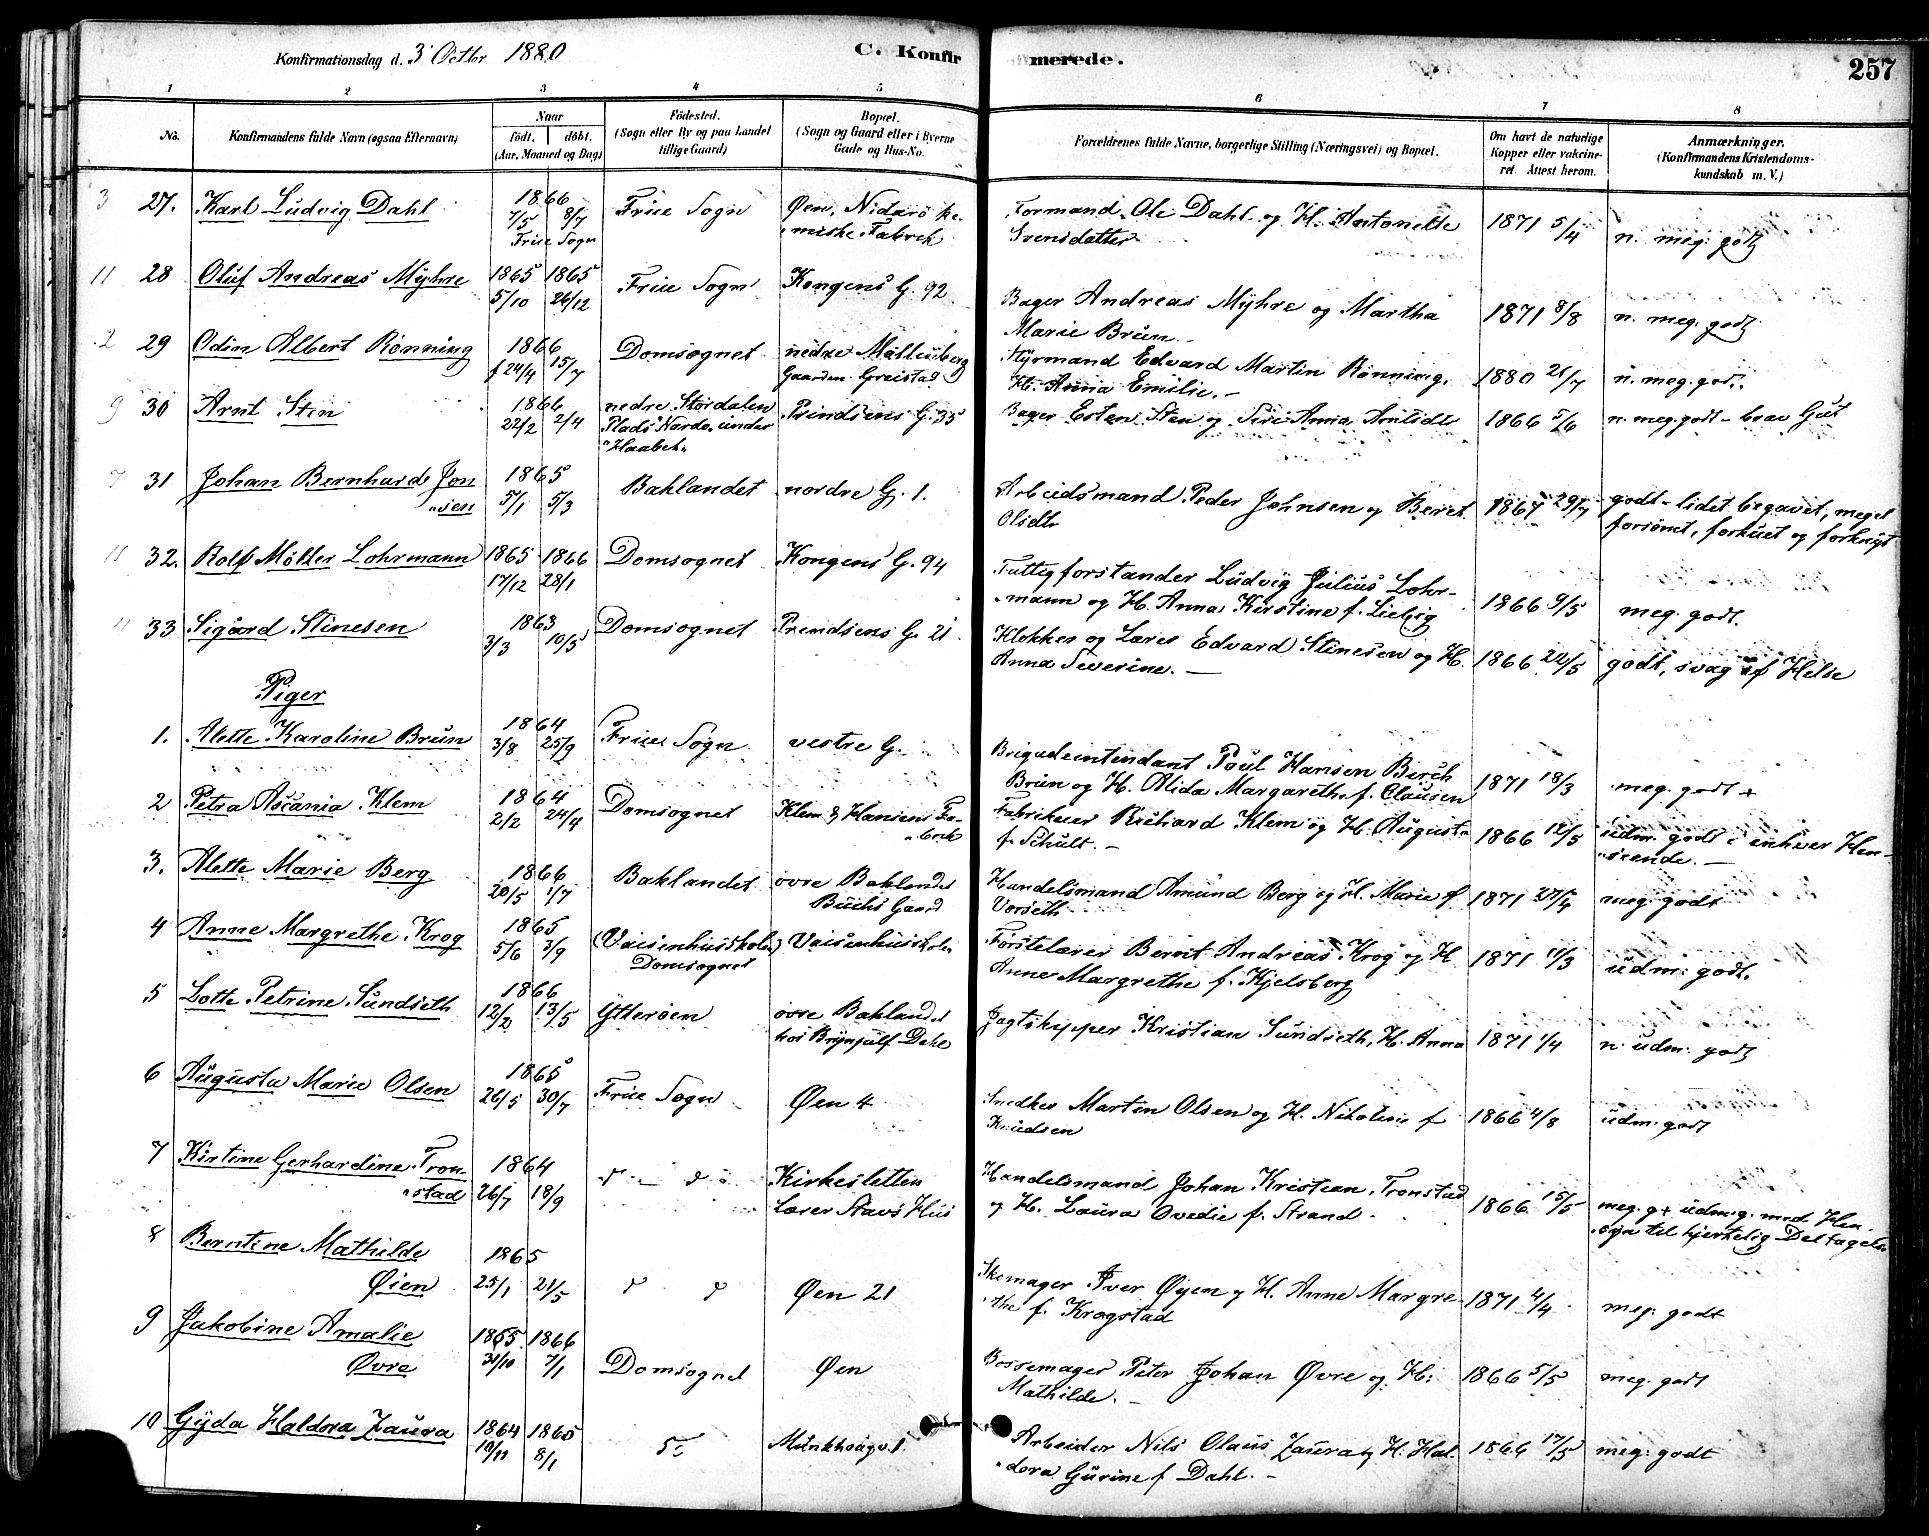 Konfirmationsdag d. 3 Octbr 1880
C. Konfirmerede.
257
1 2 3 4 5 6 7 8
No.
Konfirmandens fulde Navn (ogsaa Efternavn)
Naar
födt. döbt.
(Aar, Maaned og Dag)
Födested.
(Sogn eller By og paa Landet
tillige Gaard)
Bopæl.
(Sogn og Gaard eller i Byerne
Gade og Hus-No.
Forældrenes fulde Navne, borgerlige Stilling (Næringsvei) og Bopæl.
Om havt de naturlige
Kopper eller vakcine-
ret. Attest herom.
Anmærkninger.
(Konfirmandens Kristendoms-
kundskab m. V.)
3 27. Karl Ludvig Dahl 1866 7/5 8/7 Frue Sogn
Frue Sogn
Øen, Nidarö ke-
miske Fabrek
Formand Ole Dahl og H. Antonette
Svensdatter
1871 5/4 n. meg. godt
11 28 Oluf Andreas Myhre 1865 5/10 1865 26/12
Frue Sogn Kongens G. 92
Bager Andreas Myhre og Martha
Marie Brun
1871 8/8 n. meg. godt
2 29 Odin Albert Rønning 1866 f 24/4 15/7
Domsognet nedre Möllenberg
Gaarden Greistad
Styrmand Edvard Martin Rønning,
H. Anna Emilie.
1880 21/7 n. meg. godt.
9 30 Arnt Sten 1866 22/2 2/4
nedre Stördalen
Plads under
Prindsens G. 35
Bager Esten Sten og Siri Anna Arntsdt
1866 5/6 n. meg. godt - brav Gut
7 31 Johan Bernhard Jon
sen
1865 5/1 5/3
Baklandet nordre G. 1.
Arbeidsmand Peder Johnsen og Beret
Olsdt
1867 29/7 godt - lidet begavet, meget
forsömt, forkuet og forknyt
11 32. Rolf Möller Lohrmann 1865 17/12 1866 28/1
Domsognet Kongens G. 94
Fattigforstander Ludvig Julius Lohr-
mann og H. Anna Kirstine f. Liebig
1866 9/5 meg. godt.
11 33 Sigurd Stinesen 1863 3/3 10/5
Domsognet Prindsens G. 21
Klokker og Lærer Edvard Stinesen og H.
Anna Severine.
1866 22/5 godt, svag af Helse
Piger
1. Alette Karoline Brun 1864 3/8 25/9
Frue Sogn vestre G.
Brigadeintendant Poul Hansen Birch
Brun og H. Alida Margarethe f. Clausen
1871 18/3 meg. godt +
2 Petra Ascania Klem 1864 2/2 24/4
Domsognet Klem & Hansens Fa-
brik
Fabrikeier Richard Klem og H. Augusta
f. Schult.
1866 12/5 udm. godt i enhver Hen-
seende.
3. Alette Marie Berg 1866 20/5 1/7
Baklandet övre Baklandet
Buchs Gaard
Handelsmand Amund Berg og H. Marie f.
Vorseth
1871 27/4 meg. godt
4 Anne Margrethe Krog 1865 5/6 3/9
(Vaisenhusskolen)
Domsognet
Vaisenhusskolen
Förstelærer Bernt Andreas Krog og H
Anne Margrethe f. Kjelsberg
1871 11/3 udm. godt.
5 Lotte Petrine Sundseth 1866 12/2 13/5
Ytteröen övre Baklandet
hos Brynjulf Dahl
Jagtskipper Kristian Sundseth, H. Anna
1871 1/4 n. udm. godt
6 Augusta Marie Olsen 1865 26/5 30/7
Frue Sogn Øen 4
Snedker Martin Olsen og H. Nikoline f
Knudsen
1866 4/8 udm. godt
7 Kirtine Gerhardine Tron
stad
1864 26/7 18/9
Kirkesletten
Lærer Stavs Hus
Handelsmand Johan Kristian Tronstad
og H. Laura Ovedie f. Strand.
1866 15/5 meg. g + udm. g. med Hen-
syn til hjertelig Deltagelse
8 Berntine Mathilde
Øien
1865 25/1 21/5
Øen 21
Skomager Iver Øyen og H. Anne Margre-
the f. Krogstad
1871 4/4 meg. godt
9 Jakobine Amalie
Øvre
1865 31/10 1866 7/1
Domsognet Øen
Bössemager Peter Johan Øvre og H.
Mathilde.
1866 5/5 meg. godt
10 Gyda Haldora Zaura 1864 10/11 1865 8/1
Munkhaugv. 1.
Arbeider Nils Olaus Zaura og H. Hal-
dora Gurine f. Dahl.
1866 17/5 meg. godt